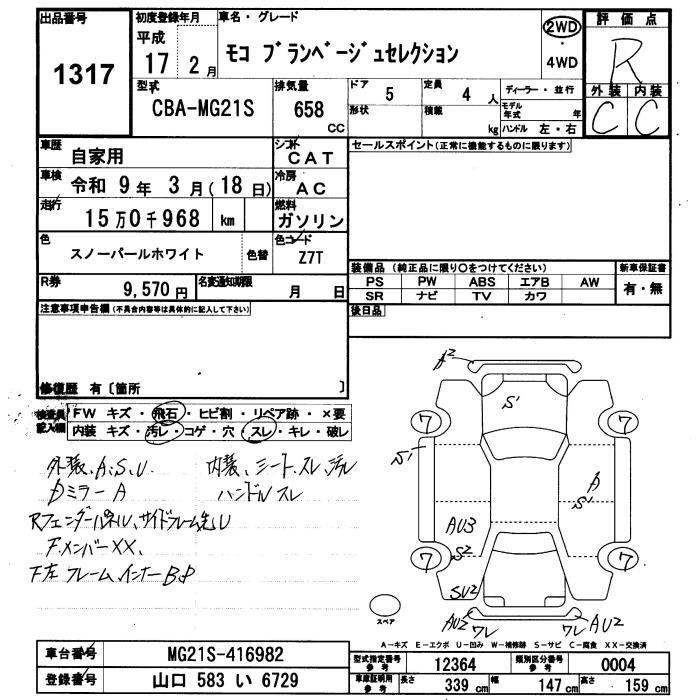 出品番号
1317
初度登録年月
平成
17 2 月
車名・グレード
モコ ブランベージュセレクション
2WD
・
4WD
評価点
R
外装 内装
C C
型式
CBA-MG21S
排気量
658
cc
ドア
5
形状
定員
4 人
積載
kg
ディーラー・並行
モデル年式 年
ハンドル 左・右
車歴
自家用
シフト
CAT
車検
令和 9 年 3 月(18 日)
冷房
AC
走行
15 万 0 千 968 km
燃料
ガソリン
色
スノーパールホワイト
色替
色コード
Z7T
R券
9,570 円
名変通知期限
月 日
セールスポイント(正常に機能するものに限ります)
装備品(純正品に限り○をつけてください)
PS PW ABS エアB AW
SR ナビ TV カワ
新車保証書
有・無
後日品
注意事項申告欄(不具合内容等は具体的に記入して下さい)
修復歴 有〔箇所 〕
検査員記入欄
FW キズ・飛石・ヒビ割・リペア跡・×要
内装 キズ・汚レ・コゲ・穴・スレ・キレ・破レ
外装、A、S、U 内装、シートスレ、汚レ
ミラーA ハンドルスレ
Rフェンダーパネル、サイドフレーム先U
F.メンバーXX、
F左フレーム、インナーB,P
A2
S'
7 7
S'
S'
AU3
S2
7 7
SU2
AU2 ワレ ワレ AU2
スペア
A-キズ E-エクボ U-凹み W-補修跡 S-サビ C-腐食 XX-交換済
車台番号
MG21S-416982
登録番号
山口 583 い 6729
型式指定番号 参考
12364
類別区分番号 参考
0004
車庫証明用 参考
長さ 339 cm 幅 147 cm 高さ 159 cm